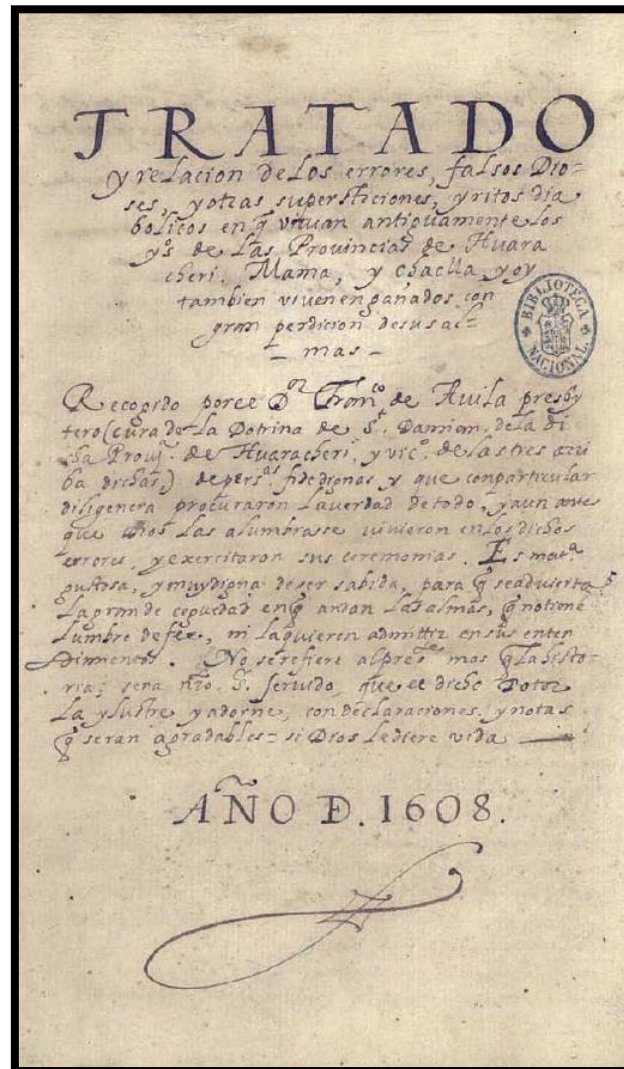 TRATADO
y relacion de los errores, falsos Dio-
ses, y otras supersticiones, y ritos dia
bolicos en q̃ viuian antiguamente los
yos. de las Provincias de Huara
cheri. Mama, y chaclla, y oy
tambien viuen engañados con
gran perdicion de sus al-
- mas -
BIBLIOTECA
NACIONAL
Recogido por el Dor. Franco. de Auila presby
tero (cura de la Dotrina de St. Damian. de la di
cha Prouj. de Huaracheri. y vico. de las tres arri
ba dichas,) de persas. fidedignas y que con particular
diligencia procuraron la verdad de todo, y aun antes
que Dios las alumbrasse viuieron en los dichos
errores, y exercitaron sus ceremonias. Es mata.
gustosa, y muy digna de ser sabida, para q̃ se aduierta
la grande ceguedad en q̃ andan las almas, q̃ no tiene
lumbre de fee, ni la quieren admittir en sus enten
dimientos. No se refiere al preste. mas q̃ la histo-
ria; sera nro. S. seruido, que el dicho Dotor
la ylustre y adorne, con declaraciones. y notas
q̃ seran agradables - si Dios le diere vida —
AÑO D. 1608.